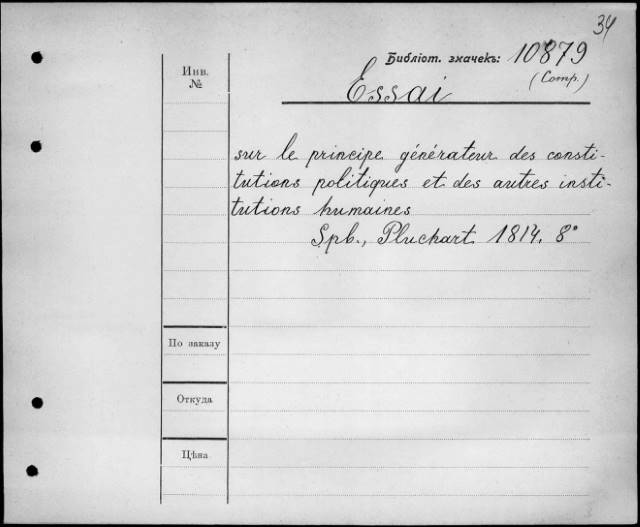 34
Библіот. значекъ: 10879
(Comp.)
Инв.
№
Essai
sur le principe générateur des consti-
tutions politiques et des autres insti-
tutions humaines
Spb., Pluchart 1814. 8°
По заказу
Откуда
Цѣна